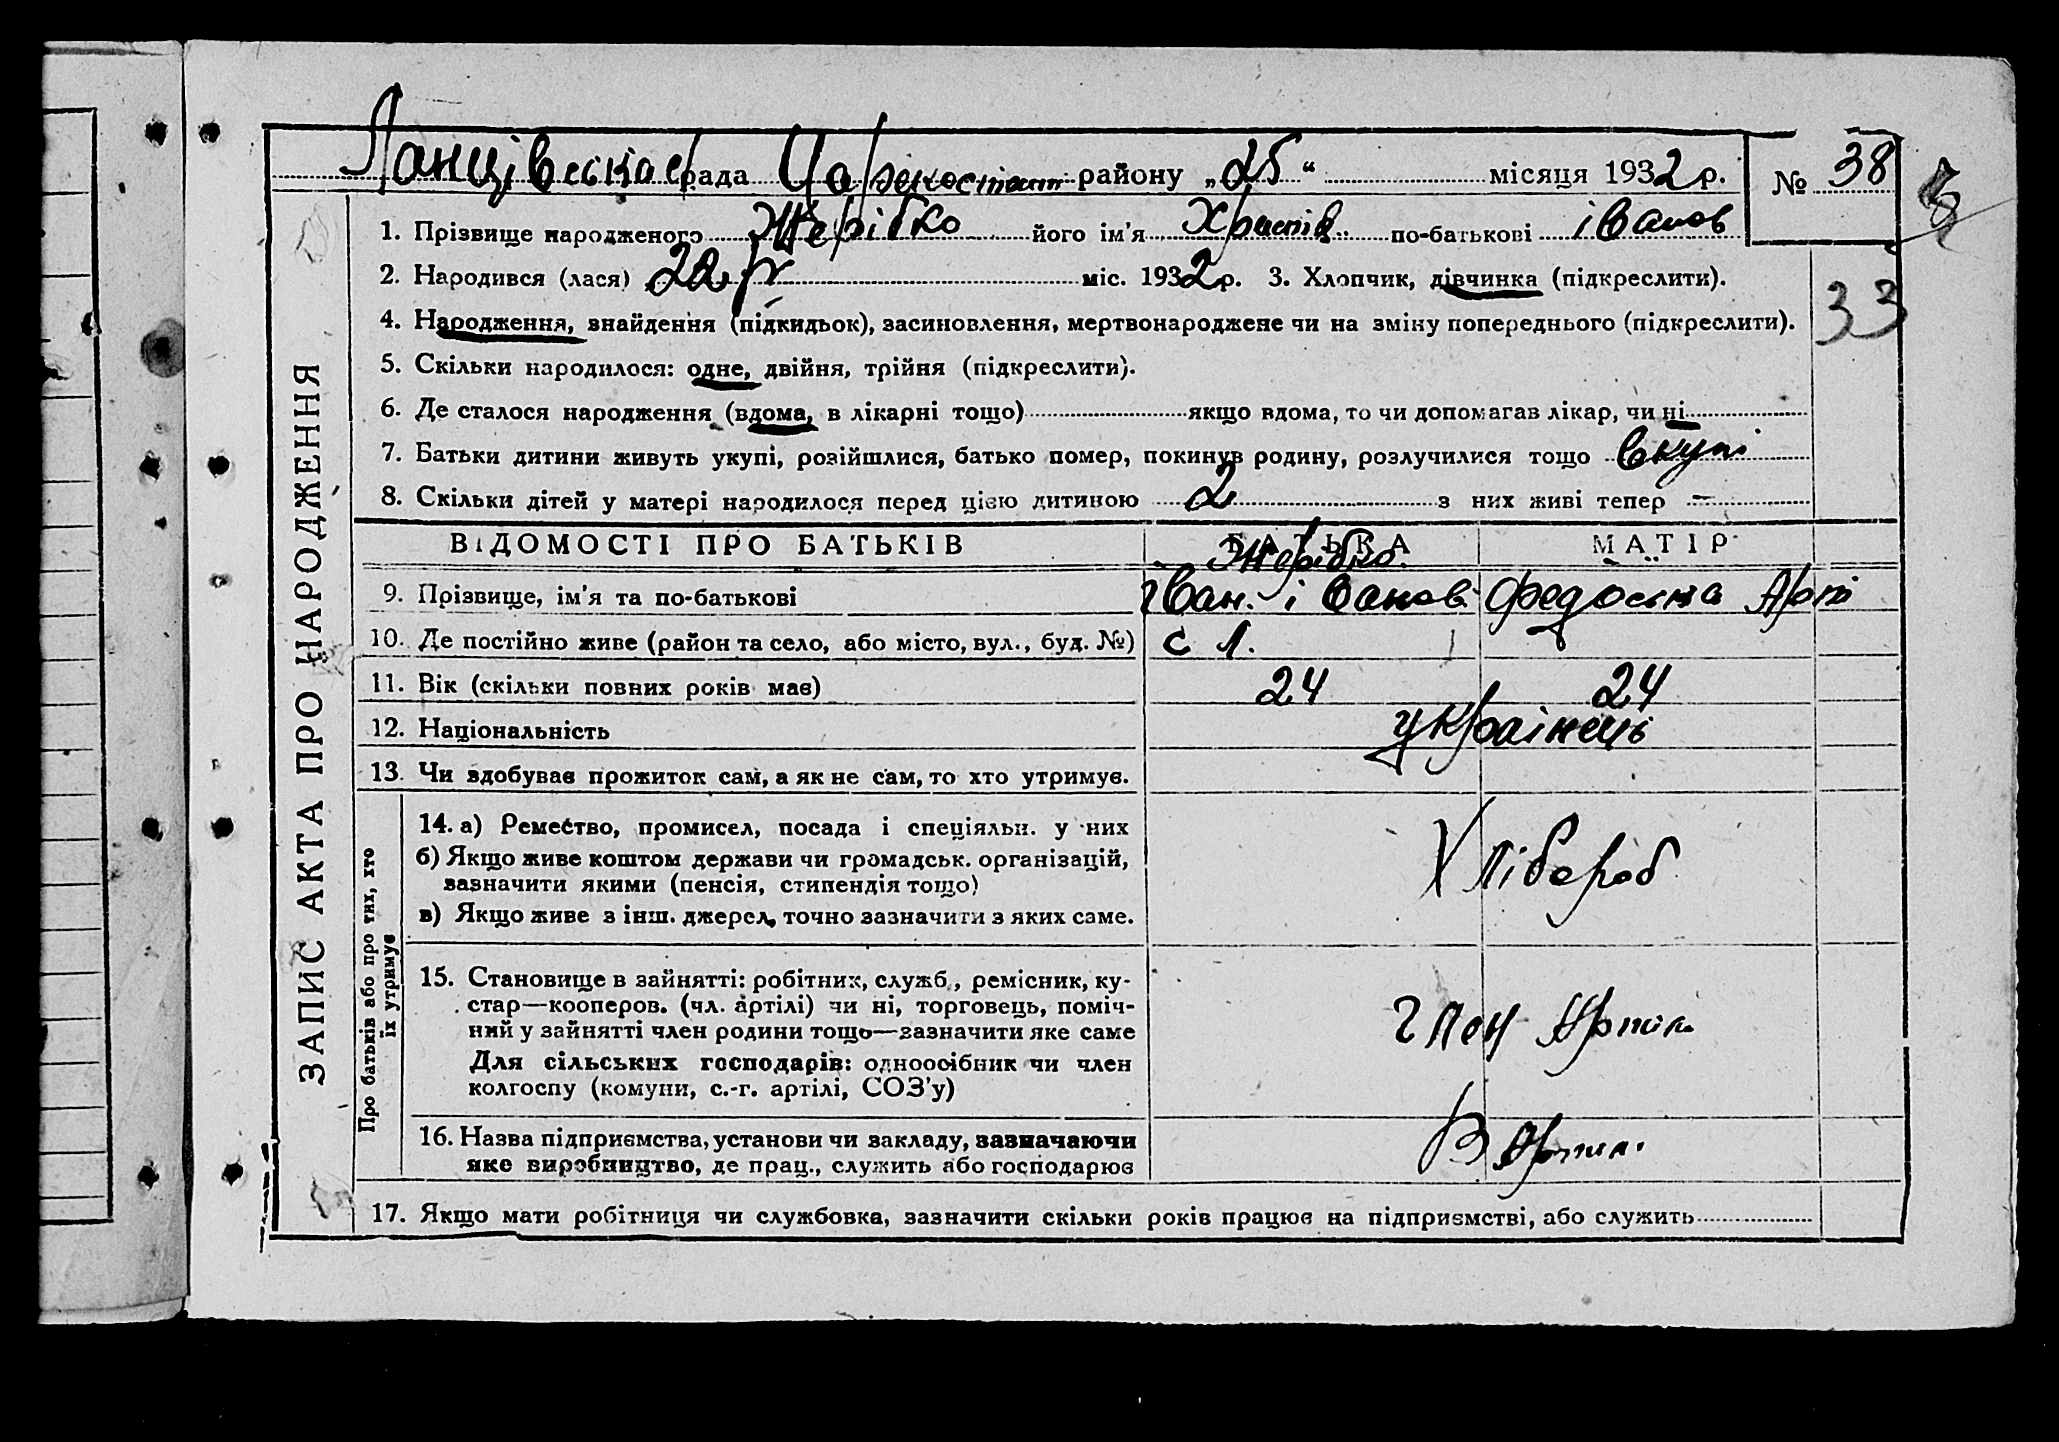 Ланцівська рада района району „25“ місяця 1932 р. № 38
1. Прізвище народженого Жерібко його ім’я Христів. по-батькові іванов
2. Народився (лася) міс. 1932 р. 3. Хлопчик, дівчинка (підкреслити).
33
4. Народження, знайдення (підкидьок), засиновлення, мертвонароджене чи на зміну попереднього (підкреслити).
5. Скільки народилося: одне, двійня, трійня (підкреслити).
6. Де сталося народження (вдома, в лікарні тощо) якщо вдома, то чи допомагав лікар, чи ні
7. Батьки дитини живуть укупі, розійшлися, батько помер, покинув родину, розлучилися тощо Вкупі
8. Скільки дітей у матері народилося перед цією дитиною 2 з них живі тепер –
ЗАПИС АКТА ПРО НАРОДЖЕННЯ
ВІДОМОСТІ ПРО БАТЬКІВ БАТЬКА МАТІР
Жерібко.
9. Прізвище, ім’я та по-батькові Іван. іванов. Федоська Арт
10. Де постійно живе (район та село, або місто, вул., буд. №) с Л.
11. Вік (скільки повних років має) 24 24
12. Національність українець
13. Чи здобуває прожиток сам, а як не сам, то хто утримує.
Про батьків або про тих, хто
їх утримує
14. а) Ремество, промисел, посада і спеціяльн. у них
б) Якщо живе коштом держави чи громадськ. організацій,
зазначити якими (пенсія, стипендія тощо)
Хлібороб
в) Якщо живе з інш. джерел, точно зазначити з яких саме.
15. Становище в зайнятті: робітник, служб., ремісник, ку-
стар—кооперов. (чл. артілі) чи ні, торговець, поміч-
ний у зайнятті член родини тощо—зазначити яке саме
член Артіли
Для сільських господарів: одноосібник чи член
колгоспу (комуни, с.-г. артілі, СОЗ’у)
16. Назва підприємства, установи чи закладу, зазначаючи
яке виробництво, де прац., служить або господарює
В Артил.
17. Якщо мати робітниця чи службовка, зазначити скільки років працює на підприємстві, або служить